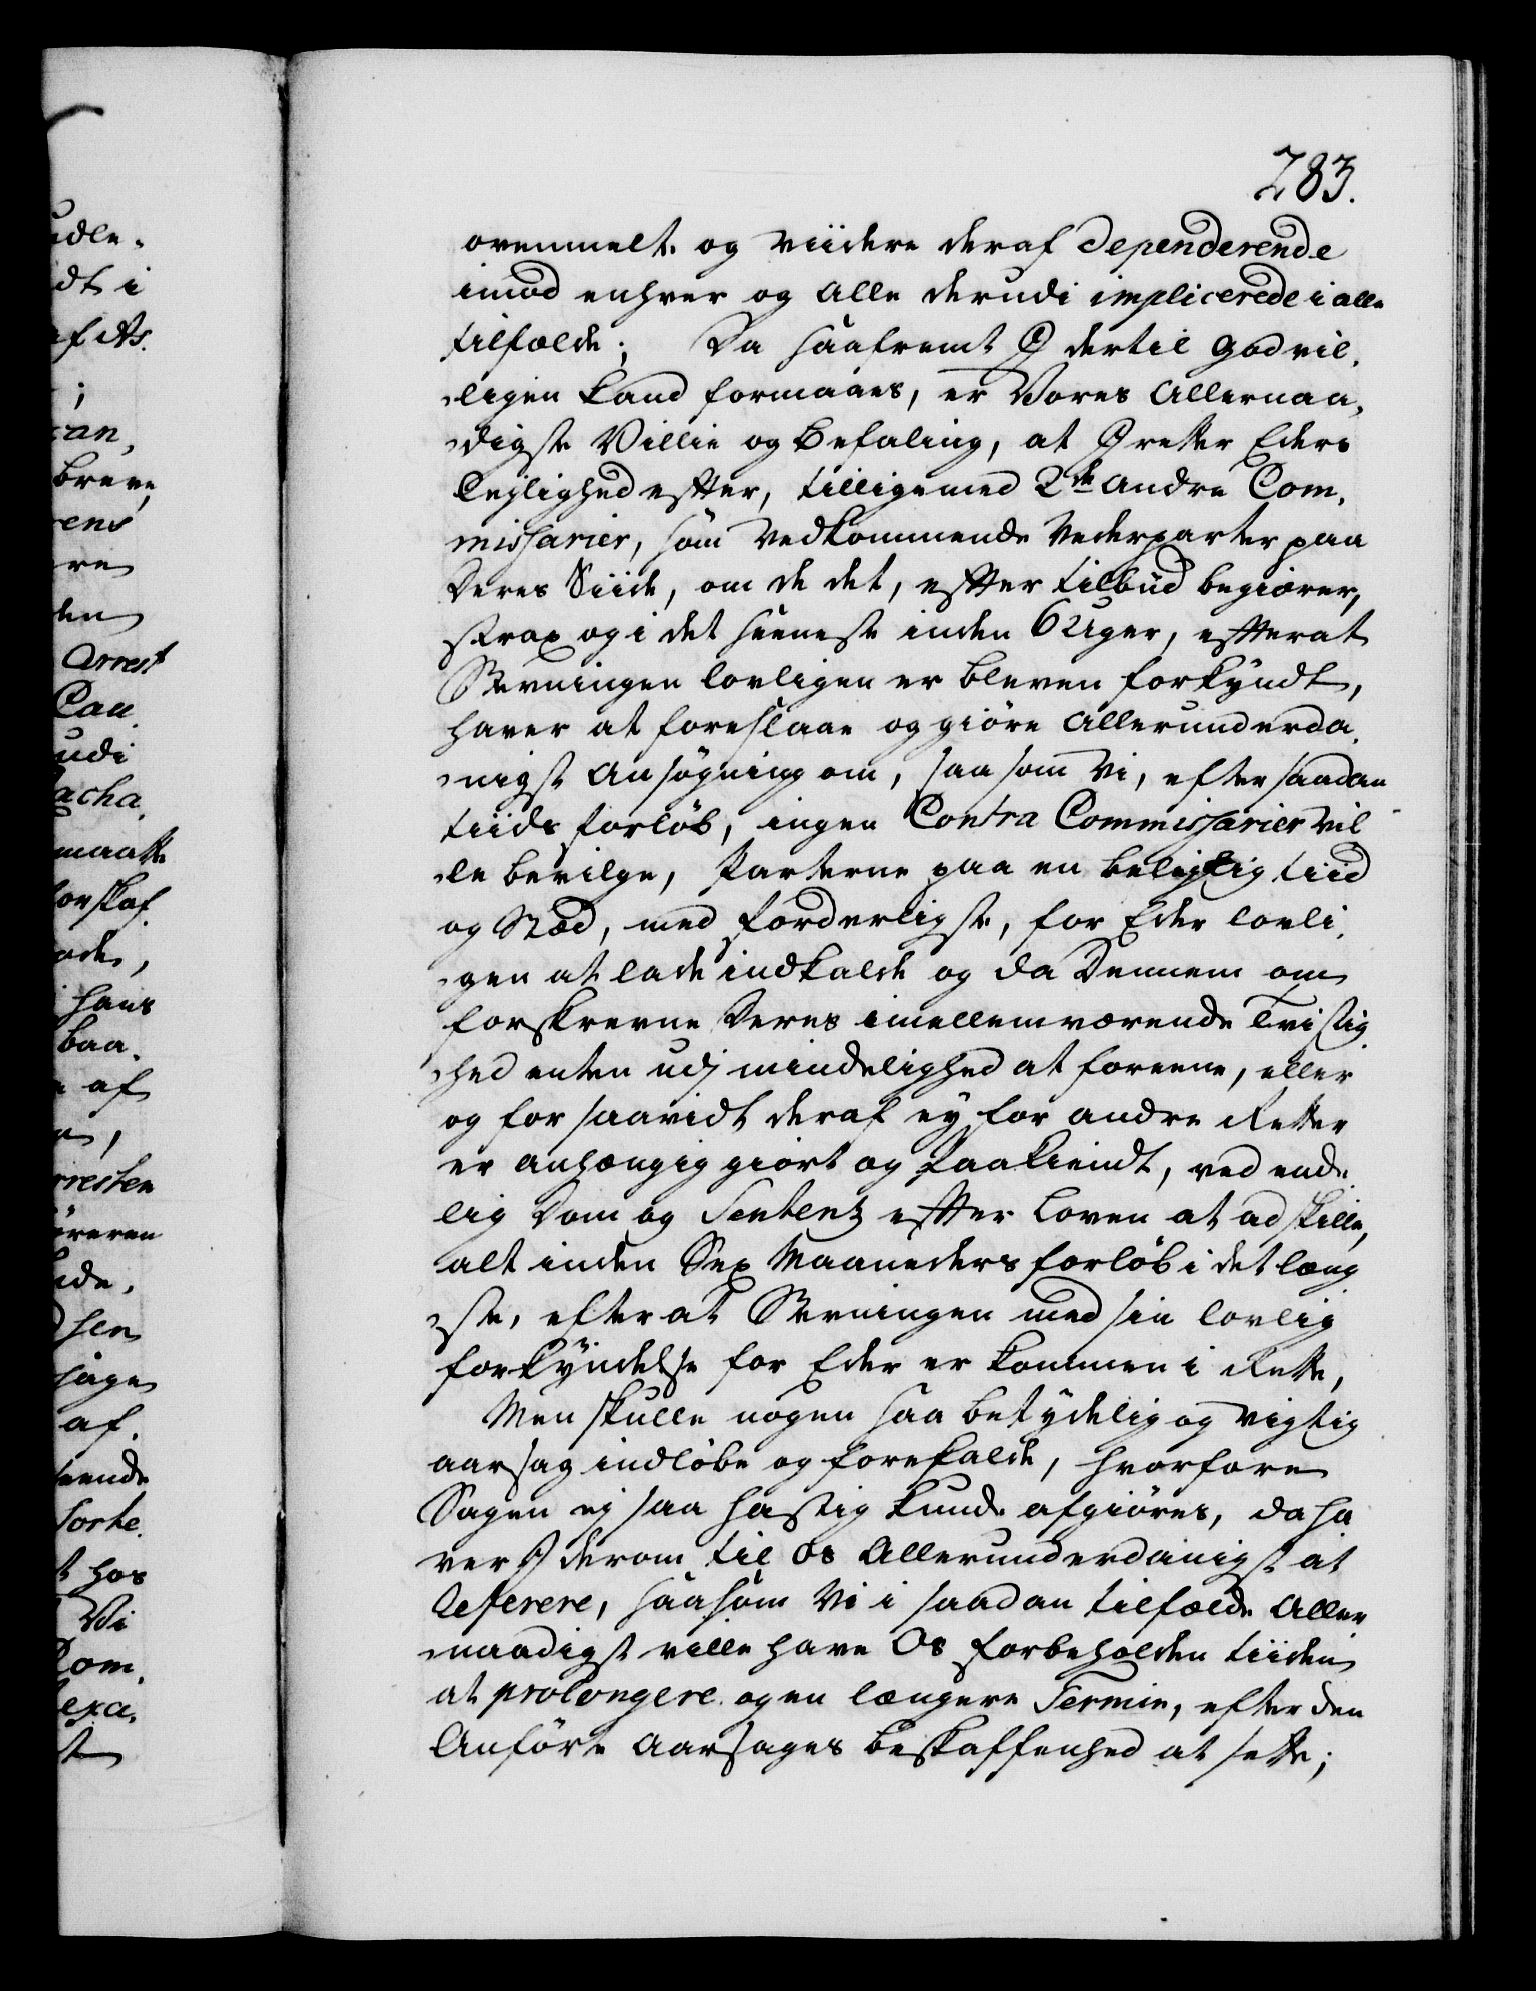 283.
ovenmelt. og viidere deraf dependerende
imod enhver og alle derudi implicerede i alle
tilfælde; Da saafremt I dertil godvil,
ligen kand formaaes, er Vores Allernaa,
digste Villie og Befaling, at I retter Eders
Leylighed efter, tilligemed 2de andre Com,
missarier, som vedkommende Vederparter paa
Deres Siide, om de det, efter tilbud begiærer,
strax og i det seeneste inden 6 Uger, efterat
Stevningen lovligen er bleven forkyndt,
haver at foreslaae og giøre allerunderda,
nigst Ansøgning om, saasom Vi, efter saadan
tiids forløb, ingen Contra Commissarier vil
le bevilge, Parterne paa en beleylig tiid
og Stæd, med forderligste, for Eder lovli,
gen at lade indkalde og da Dennem om
forskrevne Deres imellemværende Tvistig
hed enten udj mindelighed at foreene, eller
og for saavidt deraf ey for andre Retter
er anhængig giort og Paakiendt, ved ende,
lig Dom og Sentenz efter Loven at adskille,
alt inden Sex Maaneders forløb i det læng
ste, efter at Stevningen med sin lovlig
forkyndelse for Eder er kommen i Rette,
Men skulle nogen saa betydelig og vigtig
aarsag indløbe og forefalde, hvorfore
Sagen ej saa hastig kunde afgiøres, da ha
ver I derom til os Allerunderdanigst at
Referere, saasom Vi i saadan tilfælde Aller
naadigst ville have Os forbeholden tiiden
at prolongere og en længere Termin, efter den
Anførte Aarsages beskaffenhed at sette;